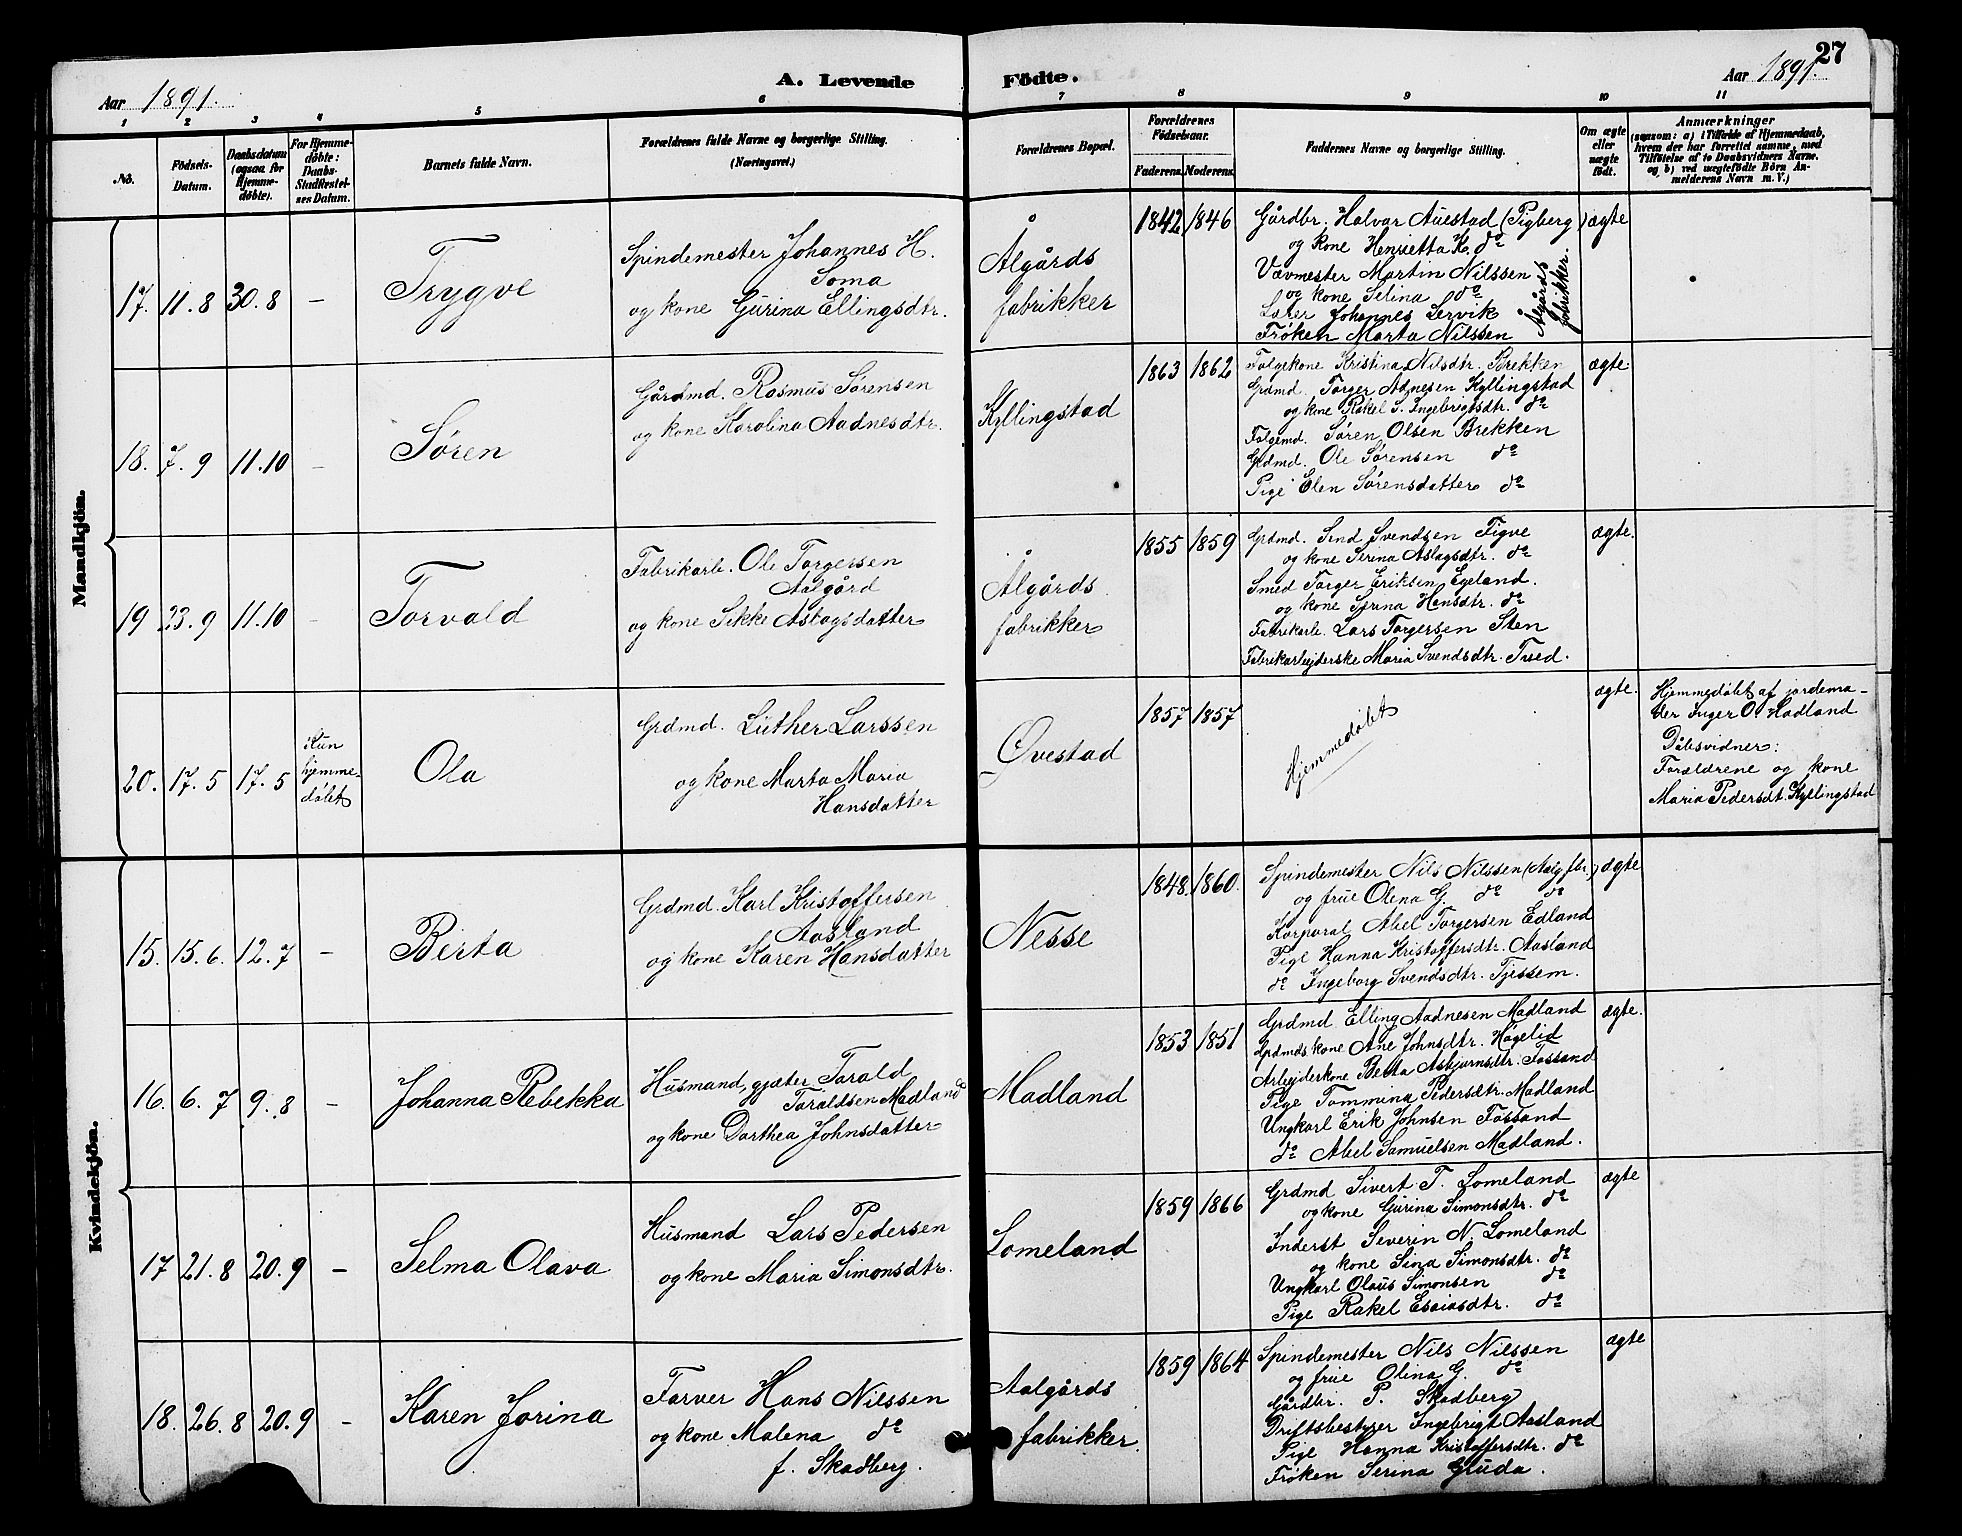 27
Aar 1891.
A. Levende Födte.
Aar 1891.
1 2 3 4 5 6 7 8 9 10 11
No.
Födsels-
Datum.
Daabsdatum
(ogsaa for
Hjemme-
döbte).
For Hjemme-
döbte:
Daabs-
Stadfæstel-
ses Datum.
Barnets fulde Navn.
Forældrenes fulde Navne og borgerlige Stilling.
(Næringsvei.)
Forældrenes Bopæl.
Forældrenes
Födselsaar.
Faderens. Moderens.
Faddernes Navne og borgerlige Stilling.
Om ægte
eller
uægte
født.
Anmærkninger
(saasom: a) i Tilfælde af Hjemmedaab,
hvem der har forrettet samme, med
Tilföielse af to Daabsvidners Navne.
og b) ved uægtefödte Börn An-
melderens Navn m. V.)
Mandkjön.
17. 11.8 30.8 – Trygve
Spindemester Johannes H.
Soma
og kone Gurina Ellingsdtr.
Ålgårds
fabrikker
1842 1846
Gårdbr. Halvar Auestad (Pigberg)
og kone Henrietta K. do
Vævmester Martin Nilssen
og kone Selina do
Lærer Johannes Lervik
Frøken Marta Nilssen
Ålgårds
fabrikker
ægte
18. 7.9 11.10 – Søren
Gårdmd. Rasmus Sørensen
og kone Karolina Aadnesdtr.
Kyllingstad
1863 1862
Folgekone Kristina Nilsdtr. Brekken
Grdmd. Torger Adnesen Kyllingstad
og kone Rakel S. Ingebrigtsdtr. do
Folgemd. Søren Olsen Brekken
Grdmd. Ole Sørensen do
Pige Elen Sørensdatter do
ægte
19 23.9 11.10 – Torvald
Fabrikarb. Ole Torgersen
Aalgård
og kone Sikke Aslagsdatter
Ålgårds
fabrikker
1855 1859
Grdmd. Svend Svendsen Figve
og kone Serina Aslagsdtr. do
Smed Torger Eriksen Egeland.
og kone Serina Hansdtr. do
Fabrikarb. Lars Torgersen Sten
Fabrikarbejderske Maria Svendsdtr. Tved.
ægte.
20. 17.5 17.5
Kun
hjemme-
døbt
Ola
Grdmd. Luther Larssen
og kone Marta Maria
Hansdatter
Øvestad
1857 1857
Hjemmedøbt
ægte.
Hjemmedøbt af jordemo-
der Inger O. Hadland
Dåbsvidner:
Forældrene og kone
Maria Pedersdt. Kyllingstad
Kvindekjön.
15. 15.6. 12.7 – Berta
Grdmd. Karl Kristoffersen
Aasland
og kone Karen Hansdatter
Nesse
1848. 1860.
Spindemester Nils Nilssen (Aalg. fbr.)
og frue Olena G. do do
Korporal Abel Torgersen Edland
Pige Hanna Kristoffersdtr. Aasland
do Ingeborg Svendsdtr. Tjessem.
ægte
16. 6.7 9.8 – Johanna Rebekka
Husmand, gjæter Tarald
Taraldsen Madland
og kone Dorthea Johnsdatter
Madland
1853 1851
Grdmd Elling Aadnesen Madland
Grdmds kone Ane Johnsdtr. Høgelid
Arbejderkone Berta Asbjørnsdtr. Fossand
Pige Tommina Pedersdtr. Madland
Ungkarl Erik Johnsen Fossand
do Abel Samuelsen Madland.
ægte.
17 21.8 20.9 – Selma Olava
Husmand Lars Pedersen
og kone Maria Simonsdtr.
Lomeland
1859 1866
Grdmd Sivert T. Lomeland
og kone Gurina Simonsdtr. do
Inderst Severin N. Lomeland
og kone Sina Simonsdtr. do
Ungkarl Olaus Simonsen do
Pige Rakel Esaiasdtr. do
ægte
18. 26.8 20.9 – Karen Jorina
Farver Hans Nilssen
og kone Malena do
f. Skadberg.
Aalgårds
fabrikker.
1859 1864
Spindemester Nils Nilssen
og frue Olina G. do
Gårdbr. P. Skadberg
Driftsbestyrer Ingebrigt Aasland
Pige Hanna Kristoffersdtr. do
Frøken Serina Gruda.
ægte